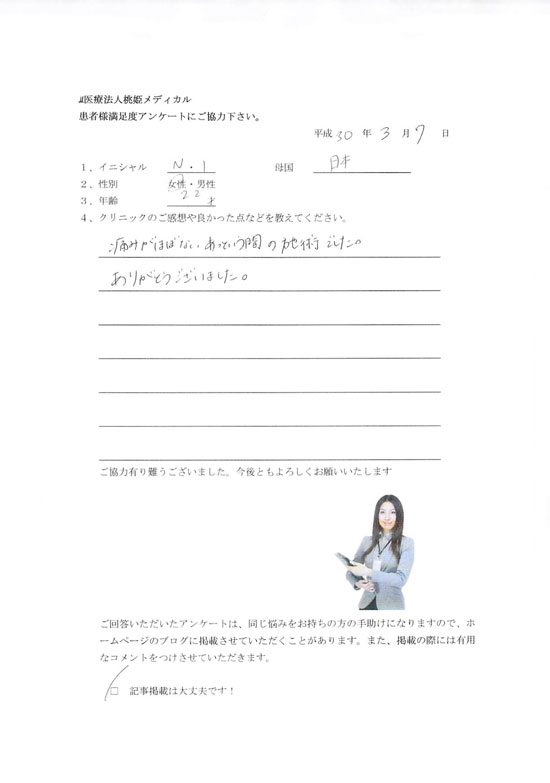 医療法人桃姫メディカル
患者様満足度アンケートにご協力下さい。
平成 30 年 3 月 7 日
1、イニシャル N.I 母国 日本
2、性別 女性・男性
3、年齢 22 才
4、クリニックのご感想や良かった点などを教えてください。
痛みがほぼない、あっという間の施術でした。
ありがとうございました。
ご協力有り難うございました。今後ともよろしくお願いいたします
ご回答いただいたアンケートは、同じ悩みをお持ちの方の手助けになりますので、ホ
ームページのブログに掲載させていただくことがあります。また、掲載の際には有用
なコメントをつけさせていただきます。
□ 記事掲載は大丈夫です！